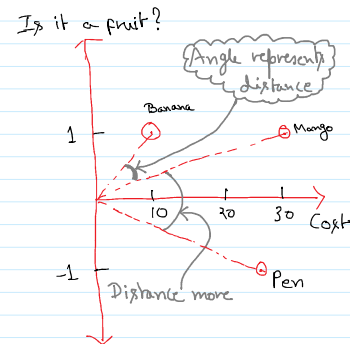 Is it a fruit?
Angle represents
distance
Banana
Mango
1
10 20 30
Cost
-1
Pen
Distance more